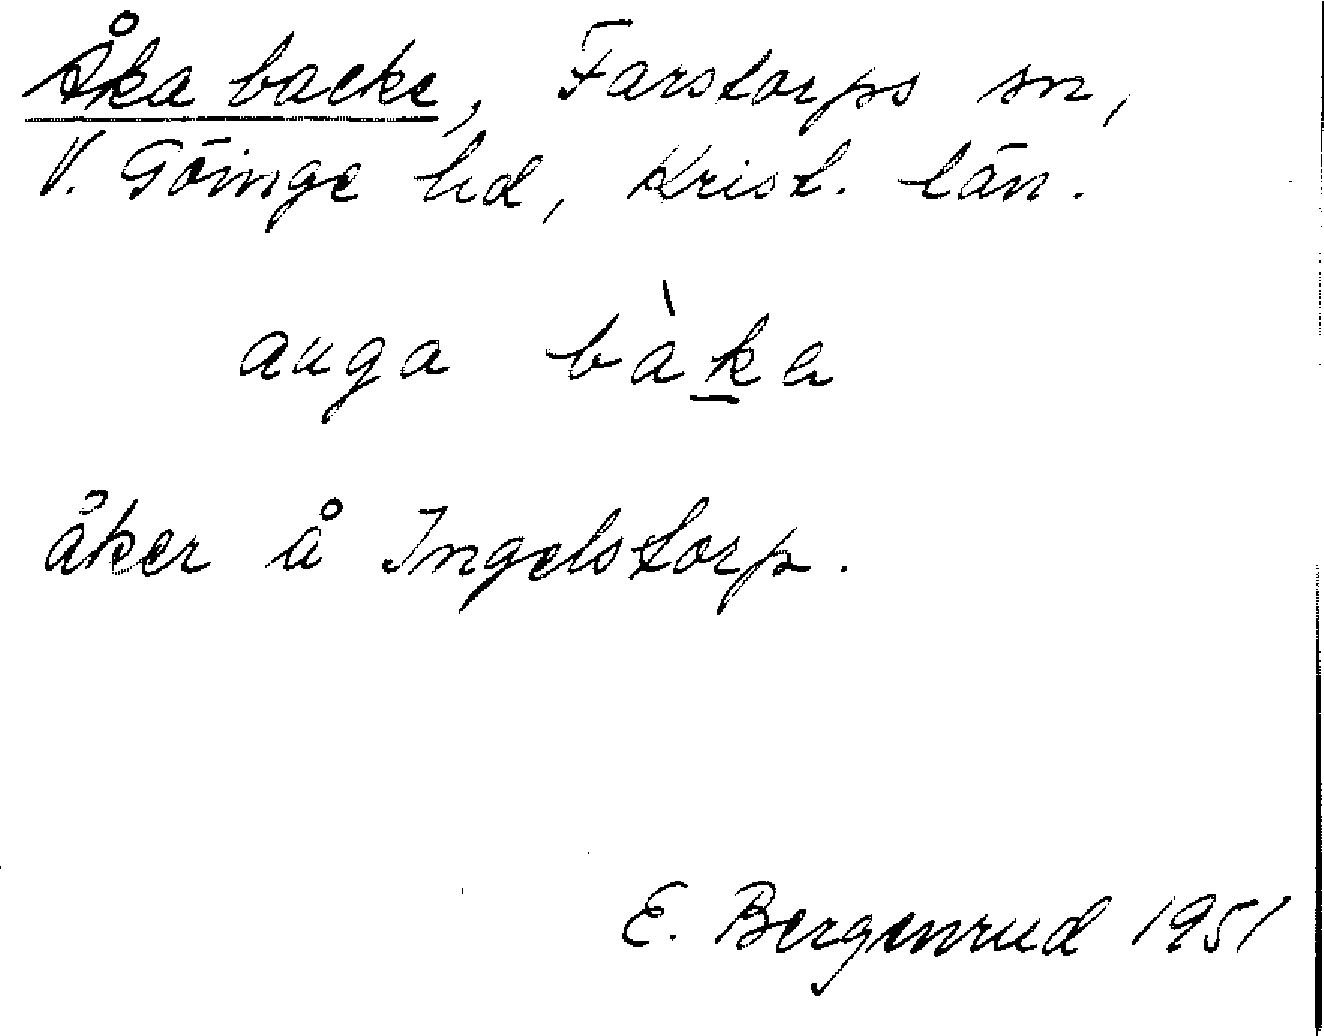 Åka backe, Farstorps sn,
V. Göinge hd, Krist. län.
auga bàka
åker å Ingelstorp.
E. Bergenrud 1951